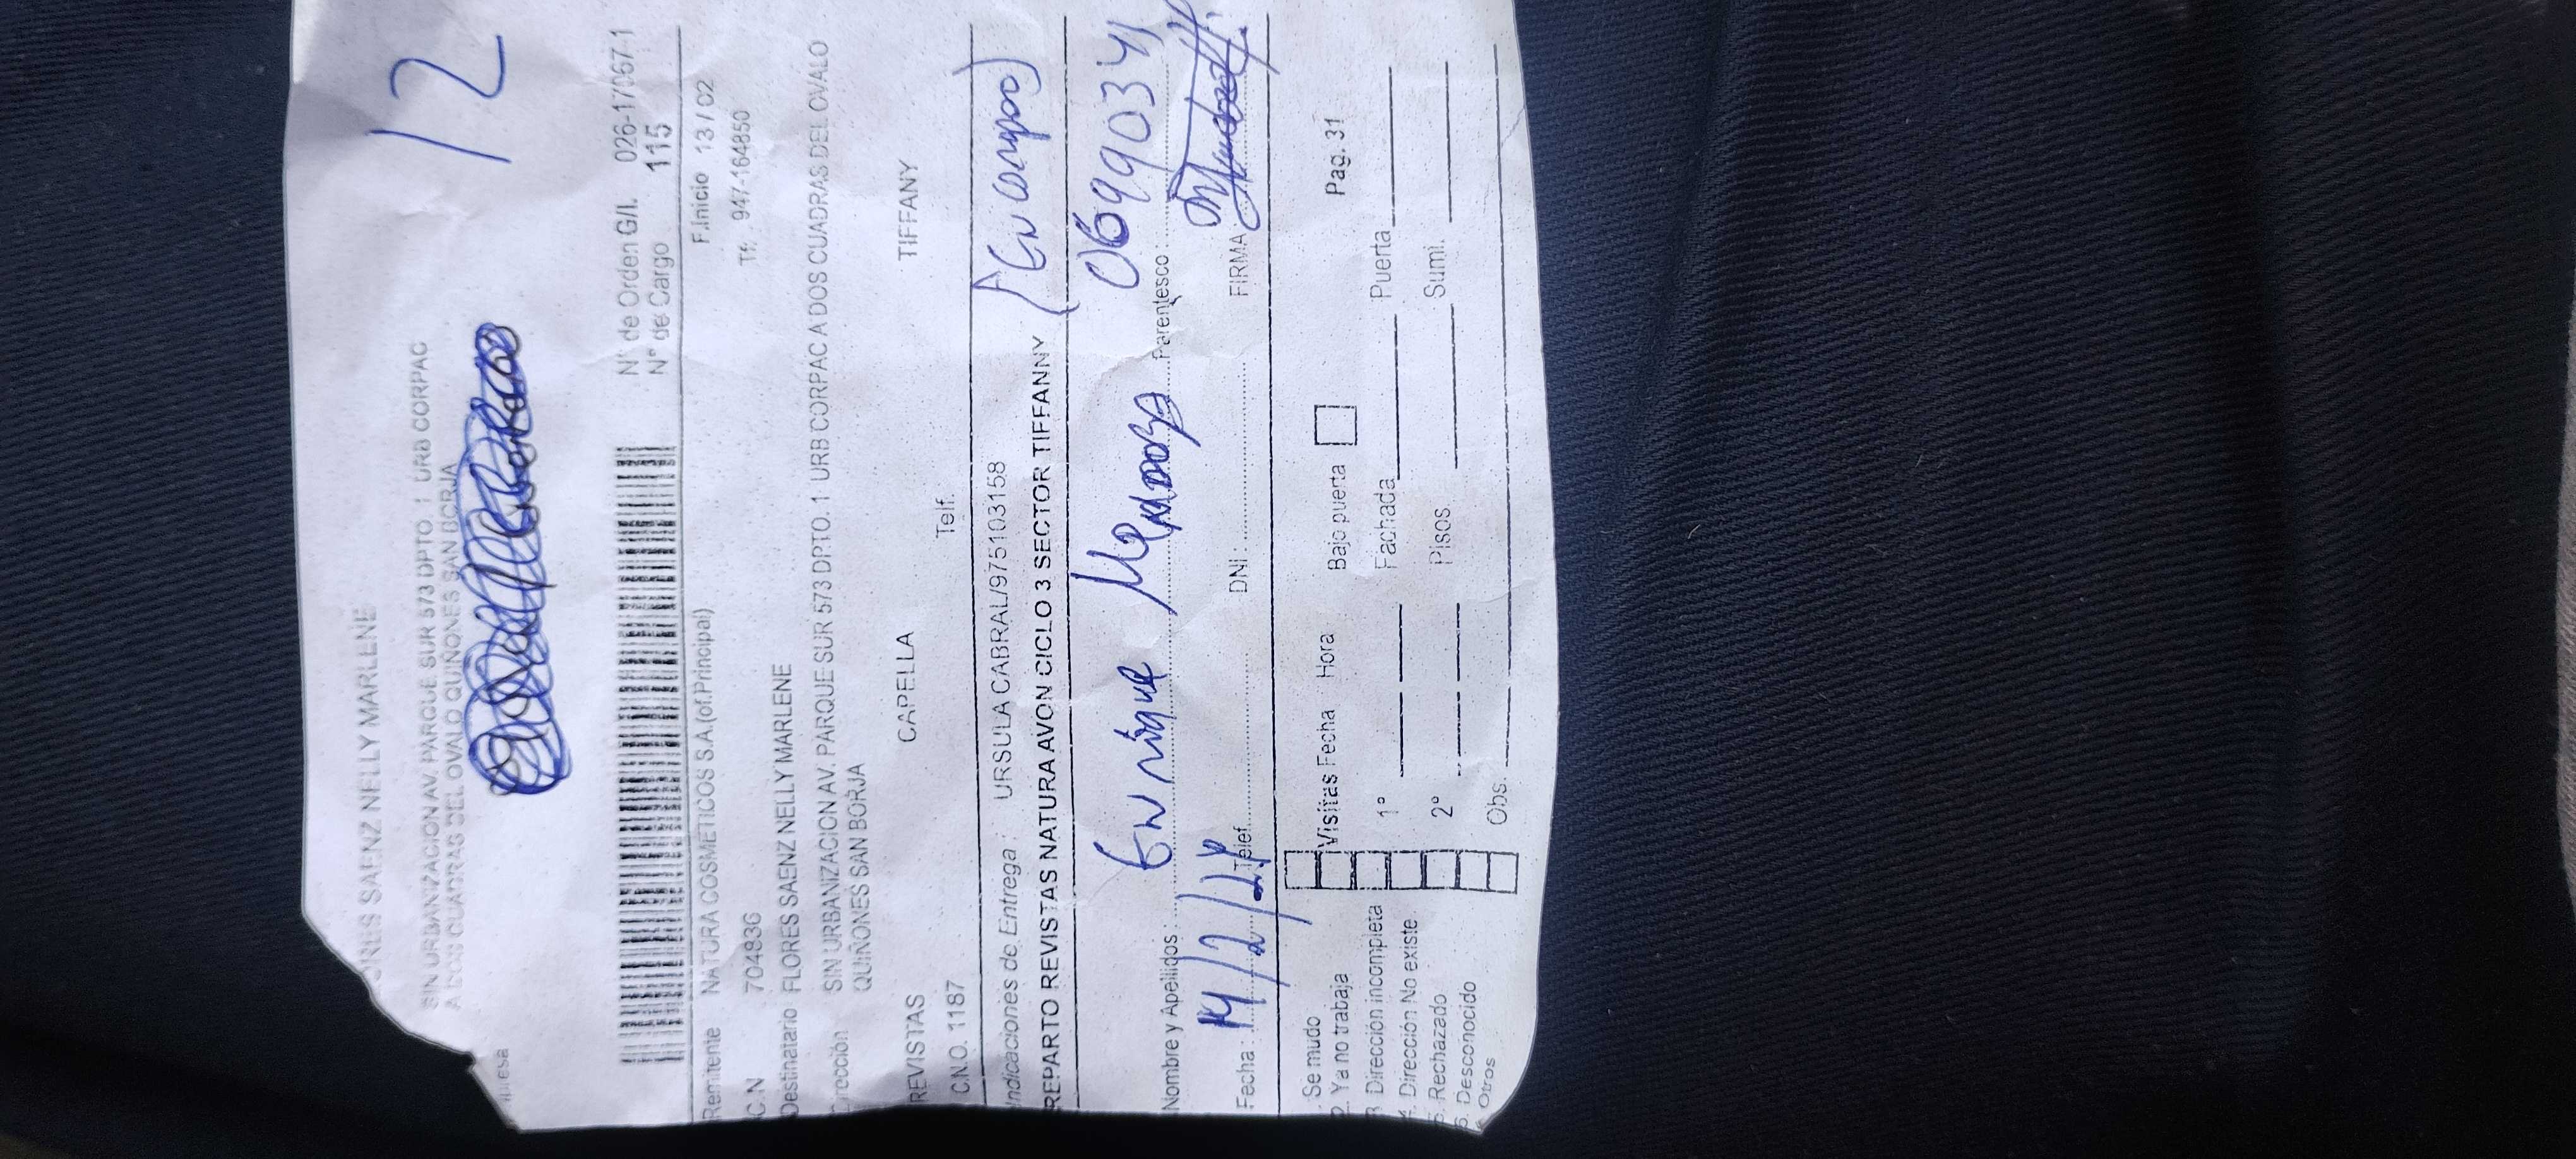 12
ORES SAENZ NELLY MARLENE
SIN URBANIZACION AV. PARQUE SUR 573 DPTO. 1 URB CORPAC
A DOS CUADRAS DEL OVALO QUIÑONES SAN BORJA
N° de Orden G/I. 026-17067-1
N° de Cargo 115
Remitente NATURA COSMETICOS S.A.(of.Principal) F.Inicio 13 / 02
C.N 704836 Tf. 947-164850
Destinatario FLORES SAENZ NELLY MARLENE
Dirección SIN URBANIZACION AV. PARQUE SUR 573 DPTO. 1 URB CORPAC A DOS CUADRAS DEL OVALO
QUIÑONES SAN BORJA
REVISTAS CAPELLA TIFFANY
C.N.O. 1187 Telf.
Indicaciones de Entrega : URSULA CABRAL/975103158
REPARTO REVISTAS NATURA AVON CICLO 3 SECTOR TIFFANNY
Nombre y Apellidos : Enrique Mendoza Parentesco : 06990341
Fecha : 14/2/24 Telef. DNI: FIRMA
Se mudo
Ya no trabaja Visitas Fecha Hora Bajo puerta Pag. 31
Dirección incompleta 1° Fachada Puerta
Dirección No existe
Rechazado 2° Pisos Sumi.
6. Desconocido
Otros Obs.